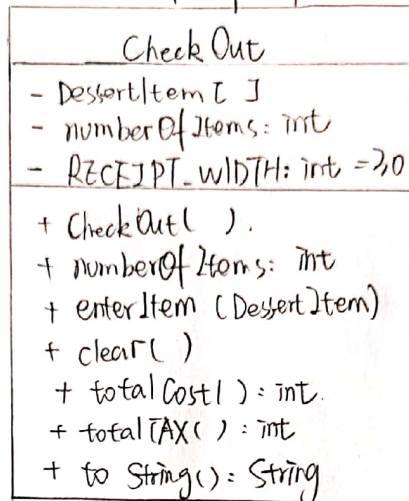 Check Out
- DessertItem [ ]
- numberOfItems: int
- RECEIPT_WIDTH: int = 30
+ CheckOut( ).
+ numberOfItems: int
+ enterItem (DessertItem)
+ clear( )
+ totalCost( ): int.
+ totalTAX( ): int
+ to String(): String